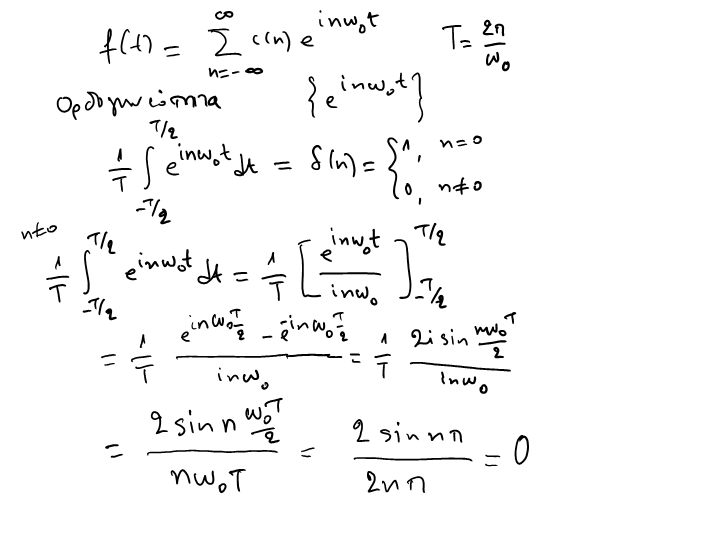 f(t) = ∑_{n=-∞}^{∞} c(n) e^{inω₀t}    T = 2π/ω₀
Ορθογωνιότητα    {e^{inω₀t}}
1/T ∫_{-T/2}^{T/2} e^{inω₀t} dt = δ(n) = { 1, n=0 ; 0, n≠0
n≠0
1/T ∫_{-T/2}^{T/2} e^{inω₀t} dt = 1/T [ e^{inω₀t} / inω₀ ]_{-T/2}^{T/2}
= 1/T (e^{inω₀T/2} - e^{-inω₀T/2}) / inω₀ = 1/T (2i sin nω₀T/2) / inω₀
= (2 sin n ω₀T/2) / (nω₀T) = (2 sin nπ) / (2nπ) = 0